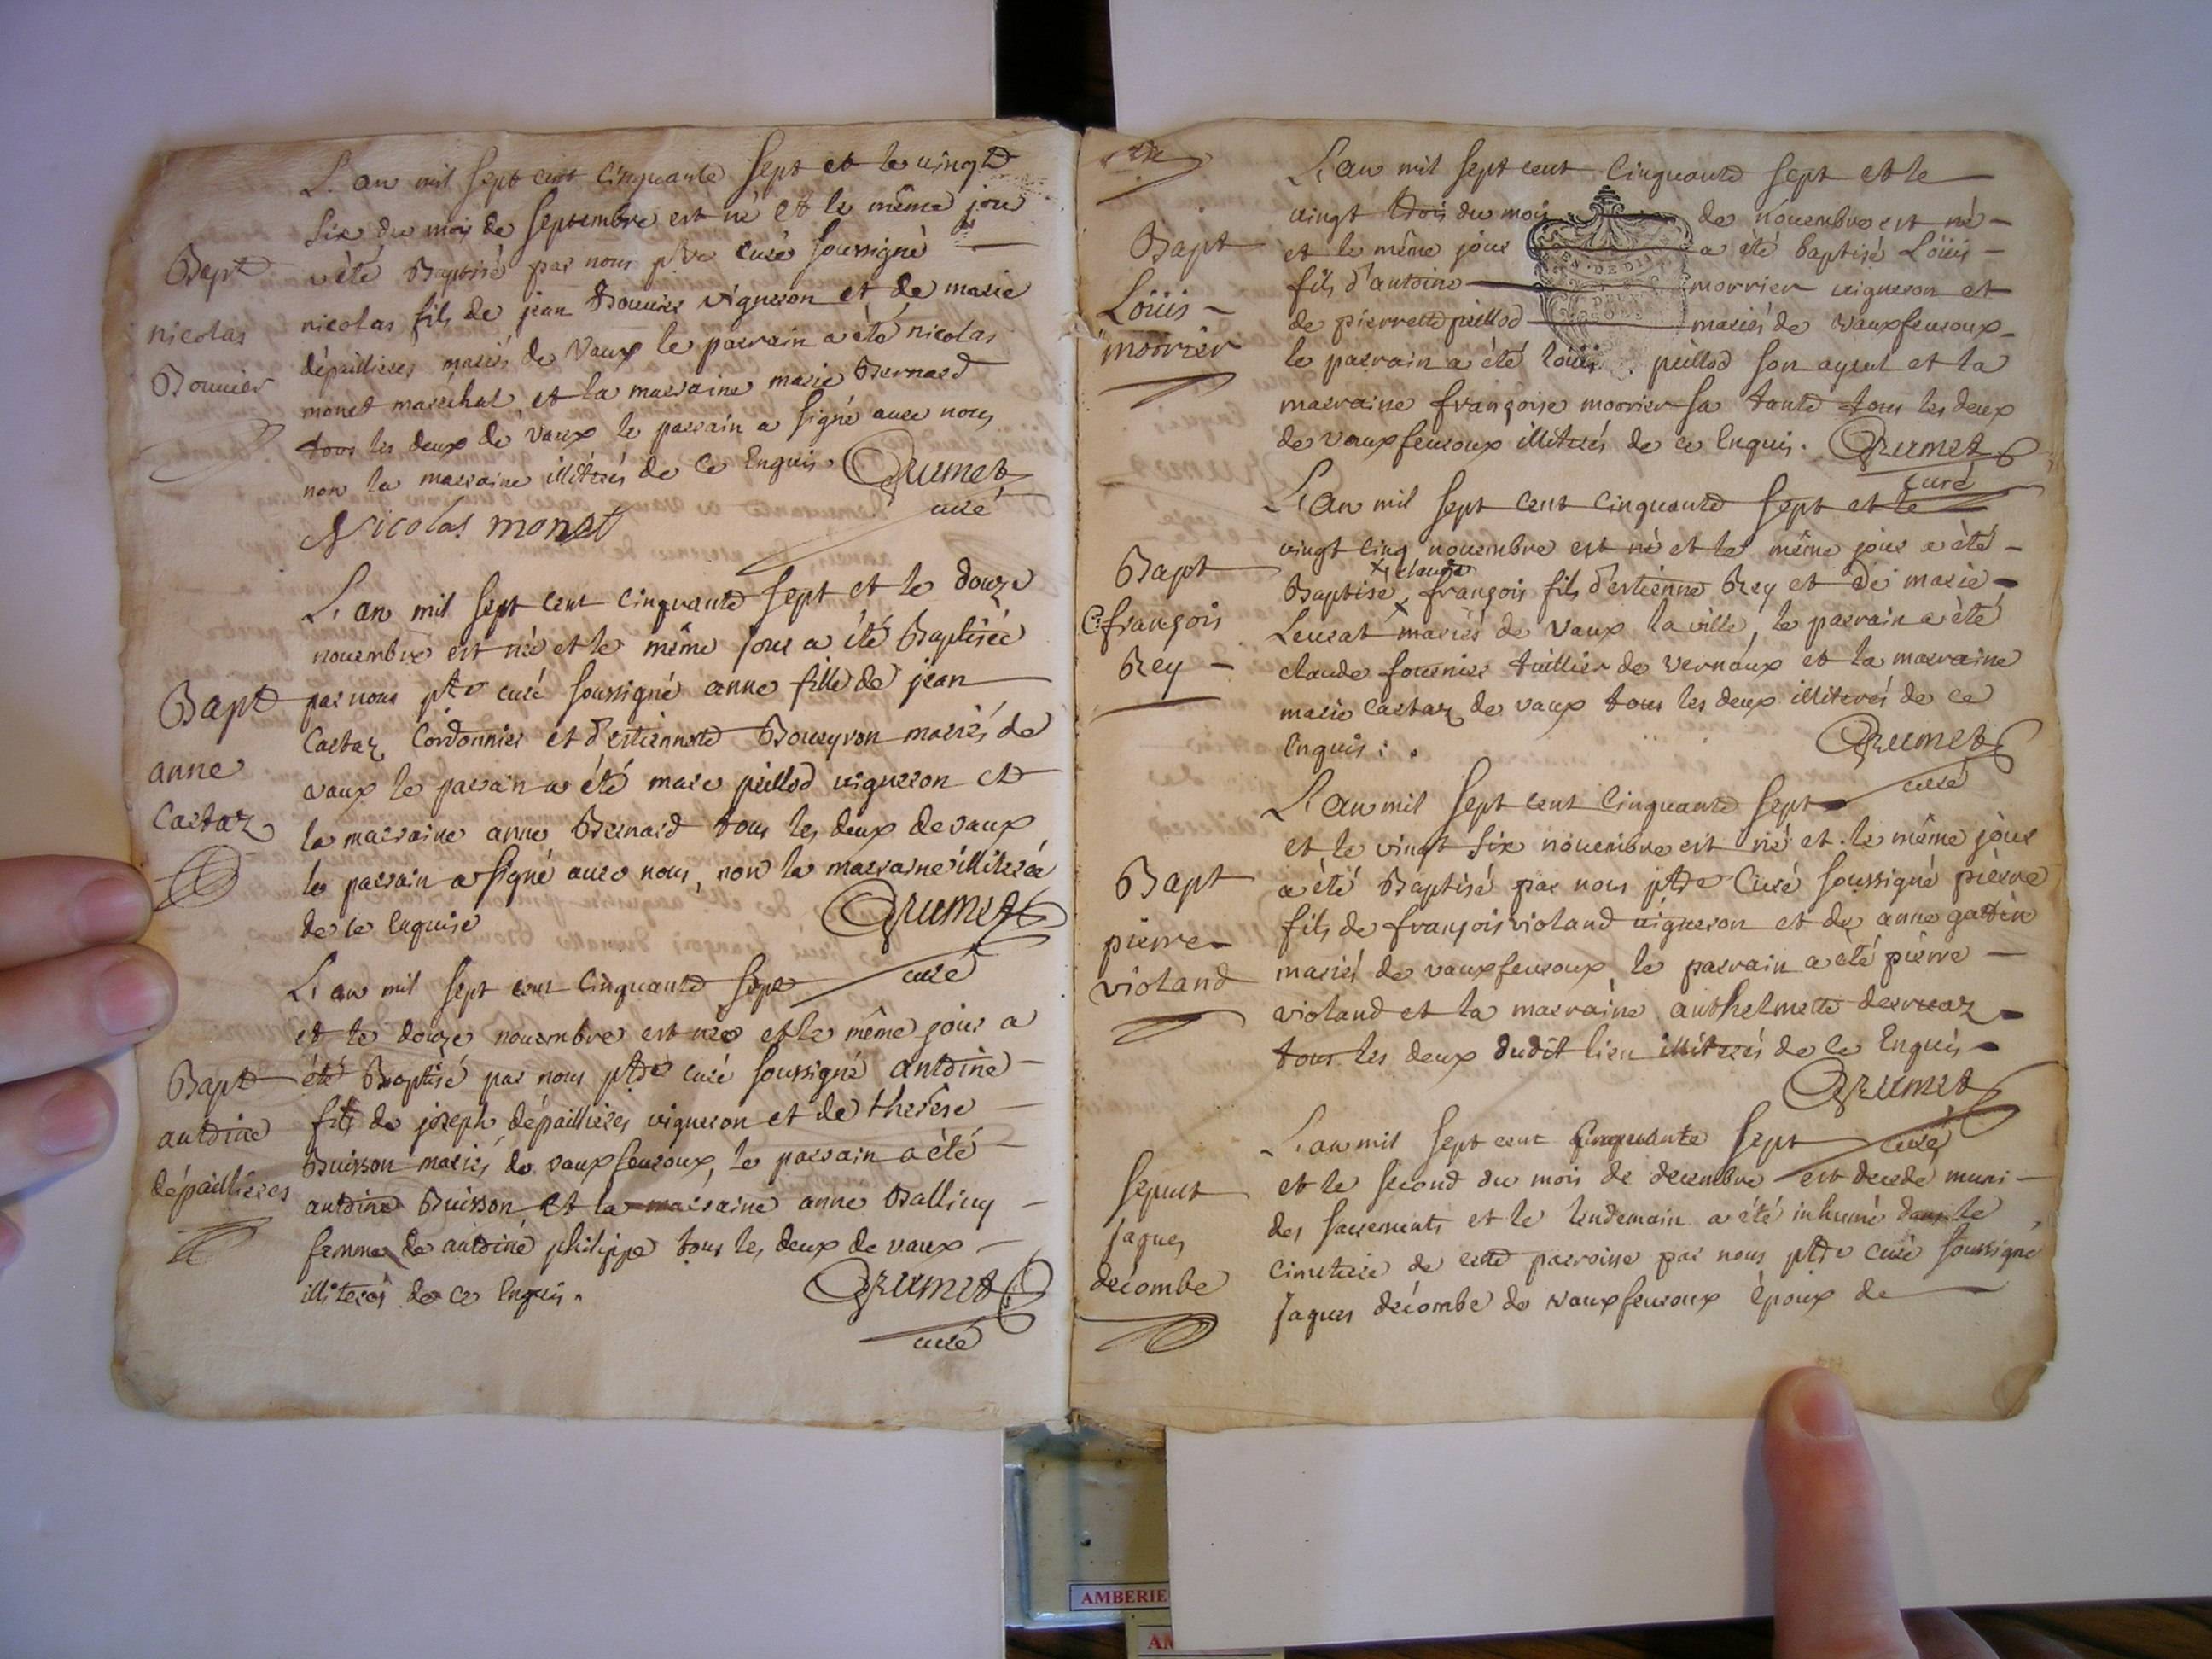 L'an mil sept cent cinquante sept et le vingt
six du mois de septembre est né et le même jour
Bapt
a été Baptisé par nous ptre curé soussigné
nicolas
nicolas fils de jean Bouvier vigneron et de marie
dépaillieres mariés de Vaux le parrain a été nicolas
Bouvier
monet maréchal et la marraine marie Bernard
tous les deux de vaux le parrain a signé avec nous
non la marraine illiterés de ce Enquis. Grumet
curé
Nicolas monet
L'an mil sept cent cinquante sept et le douze
novembre est née et le même jour a été Baptisée
Bapt
par nous ptre curé soussigné anne fille de jean
anne
Cartaz Cordonnier et d'estiennette Boueyron mariés de
vaux le parrain a été marc peillod vigneron et
Cartaz
la marraine anne Bernard tous les deux de vaux
le parrain a signé avec nous, non la marraine illiterée
de ce Enquise
Grumet
curé
L'an mil sept cent cinquante sept
et le douze novembre est née et le même jour a
Bapt
été Baptisé par nous ptre curé soussigné antoine
antoine
fils de joseph dépaillieres vigneron et de therése
dépaillieres
Buisson mariés de vauxfevroux, le parrain a été
antoine Buisson et la marraine anne Ballivy
femme de antoine philippe tous les deux de vaux
illiterés de ce Enquis.
Grumet
curé
L'an mil sept cent Cinquante sept et le
vingt trois du mois de novembre est né
Bapt
et le même jour a été baptisé Loüis
Loüis
fils d'antoine morrier vigneron et
morrier
de pierrette peillod mariés de vauxfevroux
le parrain a été loüis peillod son ayeul et la
marraine françoise morrier sa tante tous les deux
de vauxfevroux illiterés de ce Enquis. Grumet
curé
L'an mil sept cent cinquante sept et le
vingt cinq novembre est né et le même jour a été
Bapt
x claude
Baptisé x françois fils d'estienne Rey et de marie
C. françois
Leurat mariés de Vaux la ville, le parrain a été
Rey
claude fournier tuillier de vernaux et la marraine
marie Cartaz de vaux tous les deux illiterés de ce
Enquis.
Grumet
curé
L'an mil sept cent Cinquante sept
et le vingt six novembre est né et le même jour
Bapt
a été Baptisé par nous ptre Curé soussigné pierre
pierre
fils de françois violand vigneron et de anne gattin
violand
mariés de vauxfevroux le parrain a été pierre
violand et la marraine anthelmette derruaz
tous les deux dudit lieu illiterés de ce Enquis
Grumet
curé
L'an mil sept cent Cinquante sept
Sepult
et le second du mois de decembre est decedé muni
des sacrements et le lendemain a été inhumé dans le
jaques
cimetiere de cette parroisse par nous ptre curé soussigné
decombe
jaques decombe de vauxfevroux époux de
AMBERIE
AM